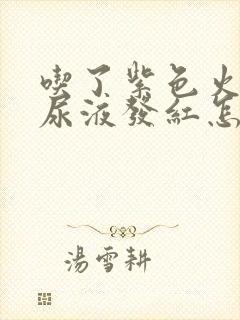 喫了紫色火
尿液發紅怎
湯雪耕